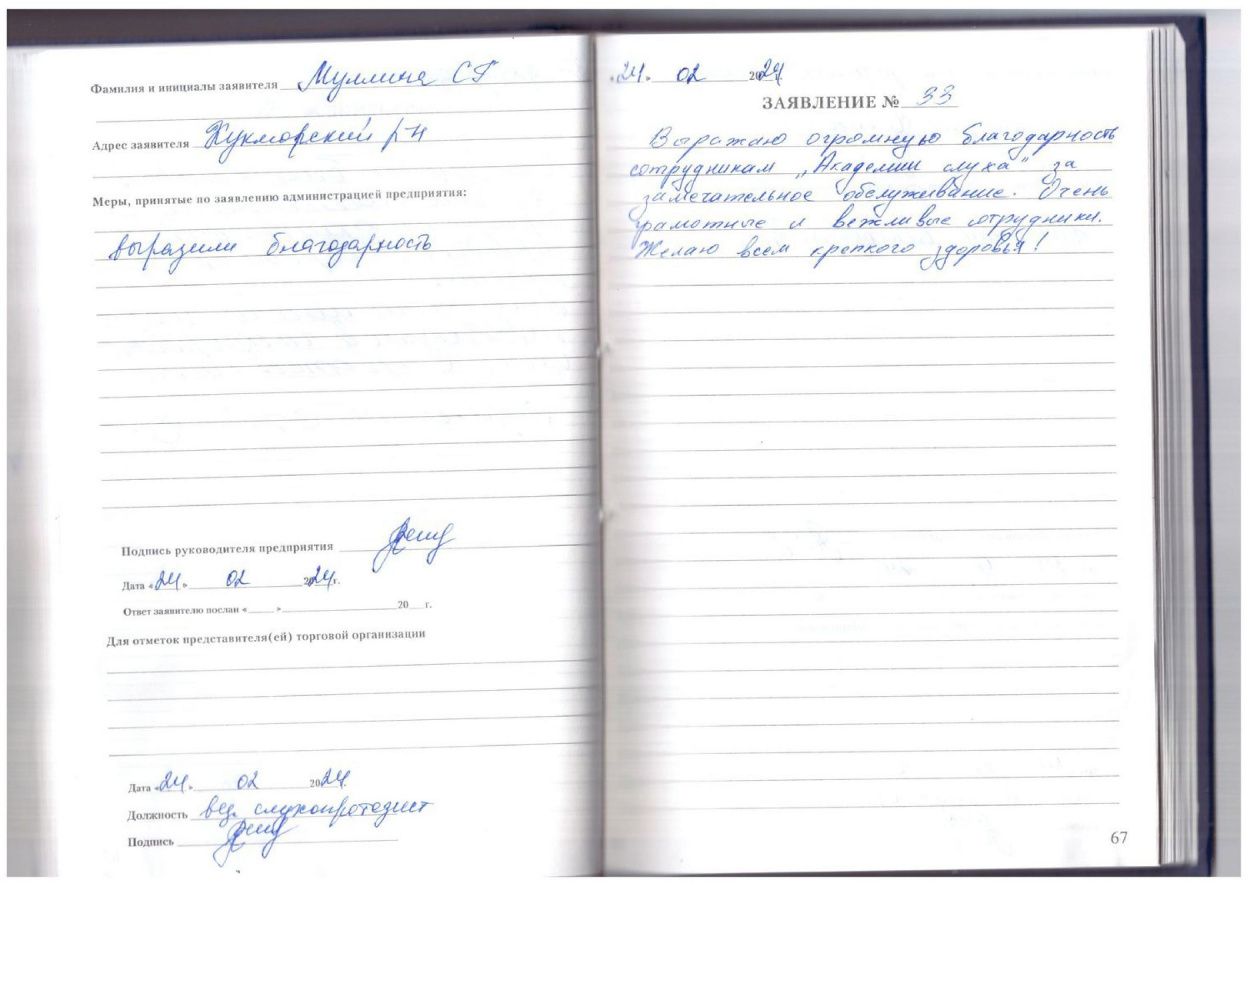 Фамилия и инициалы заявителя Муллина СГ
Адрес заявителя Кукморский р-н
Меры, принятые по заявлению администрацией предприятия:
выразили благодарность
Подпись руководителя предприятия
Дата «24» 02 2024г.
Ответ заявителю послан «____» ____ 20__г.
Для отметок представителя(ей) торговой организации
Дата «24» 02 2024г.
Должность вед. слухопротезист
Подпись
«24» 02 2024г.
ЗАЯВЛЕНИЕ № 33
Выражаю огромную благодарность
сотрудникам „Академии слуха" за
замечательное обслуживание. Очень
грамотные и вежливые сотрудники.
Желаю всем крепкого здоровья!
67